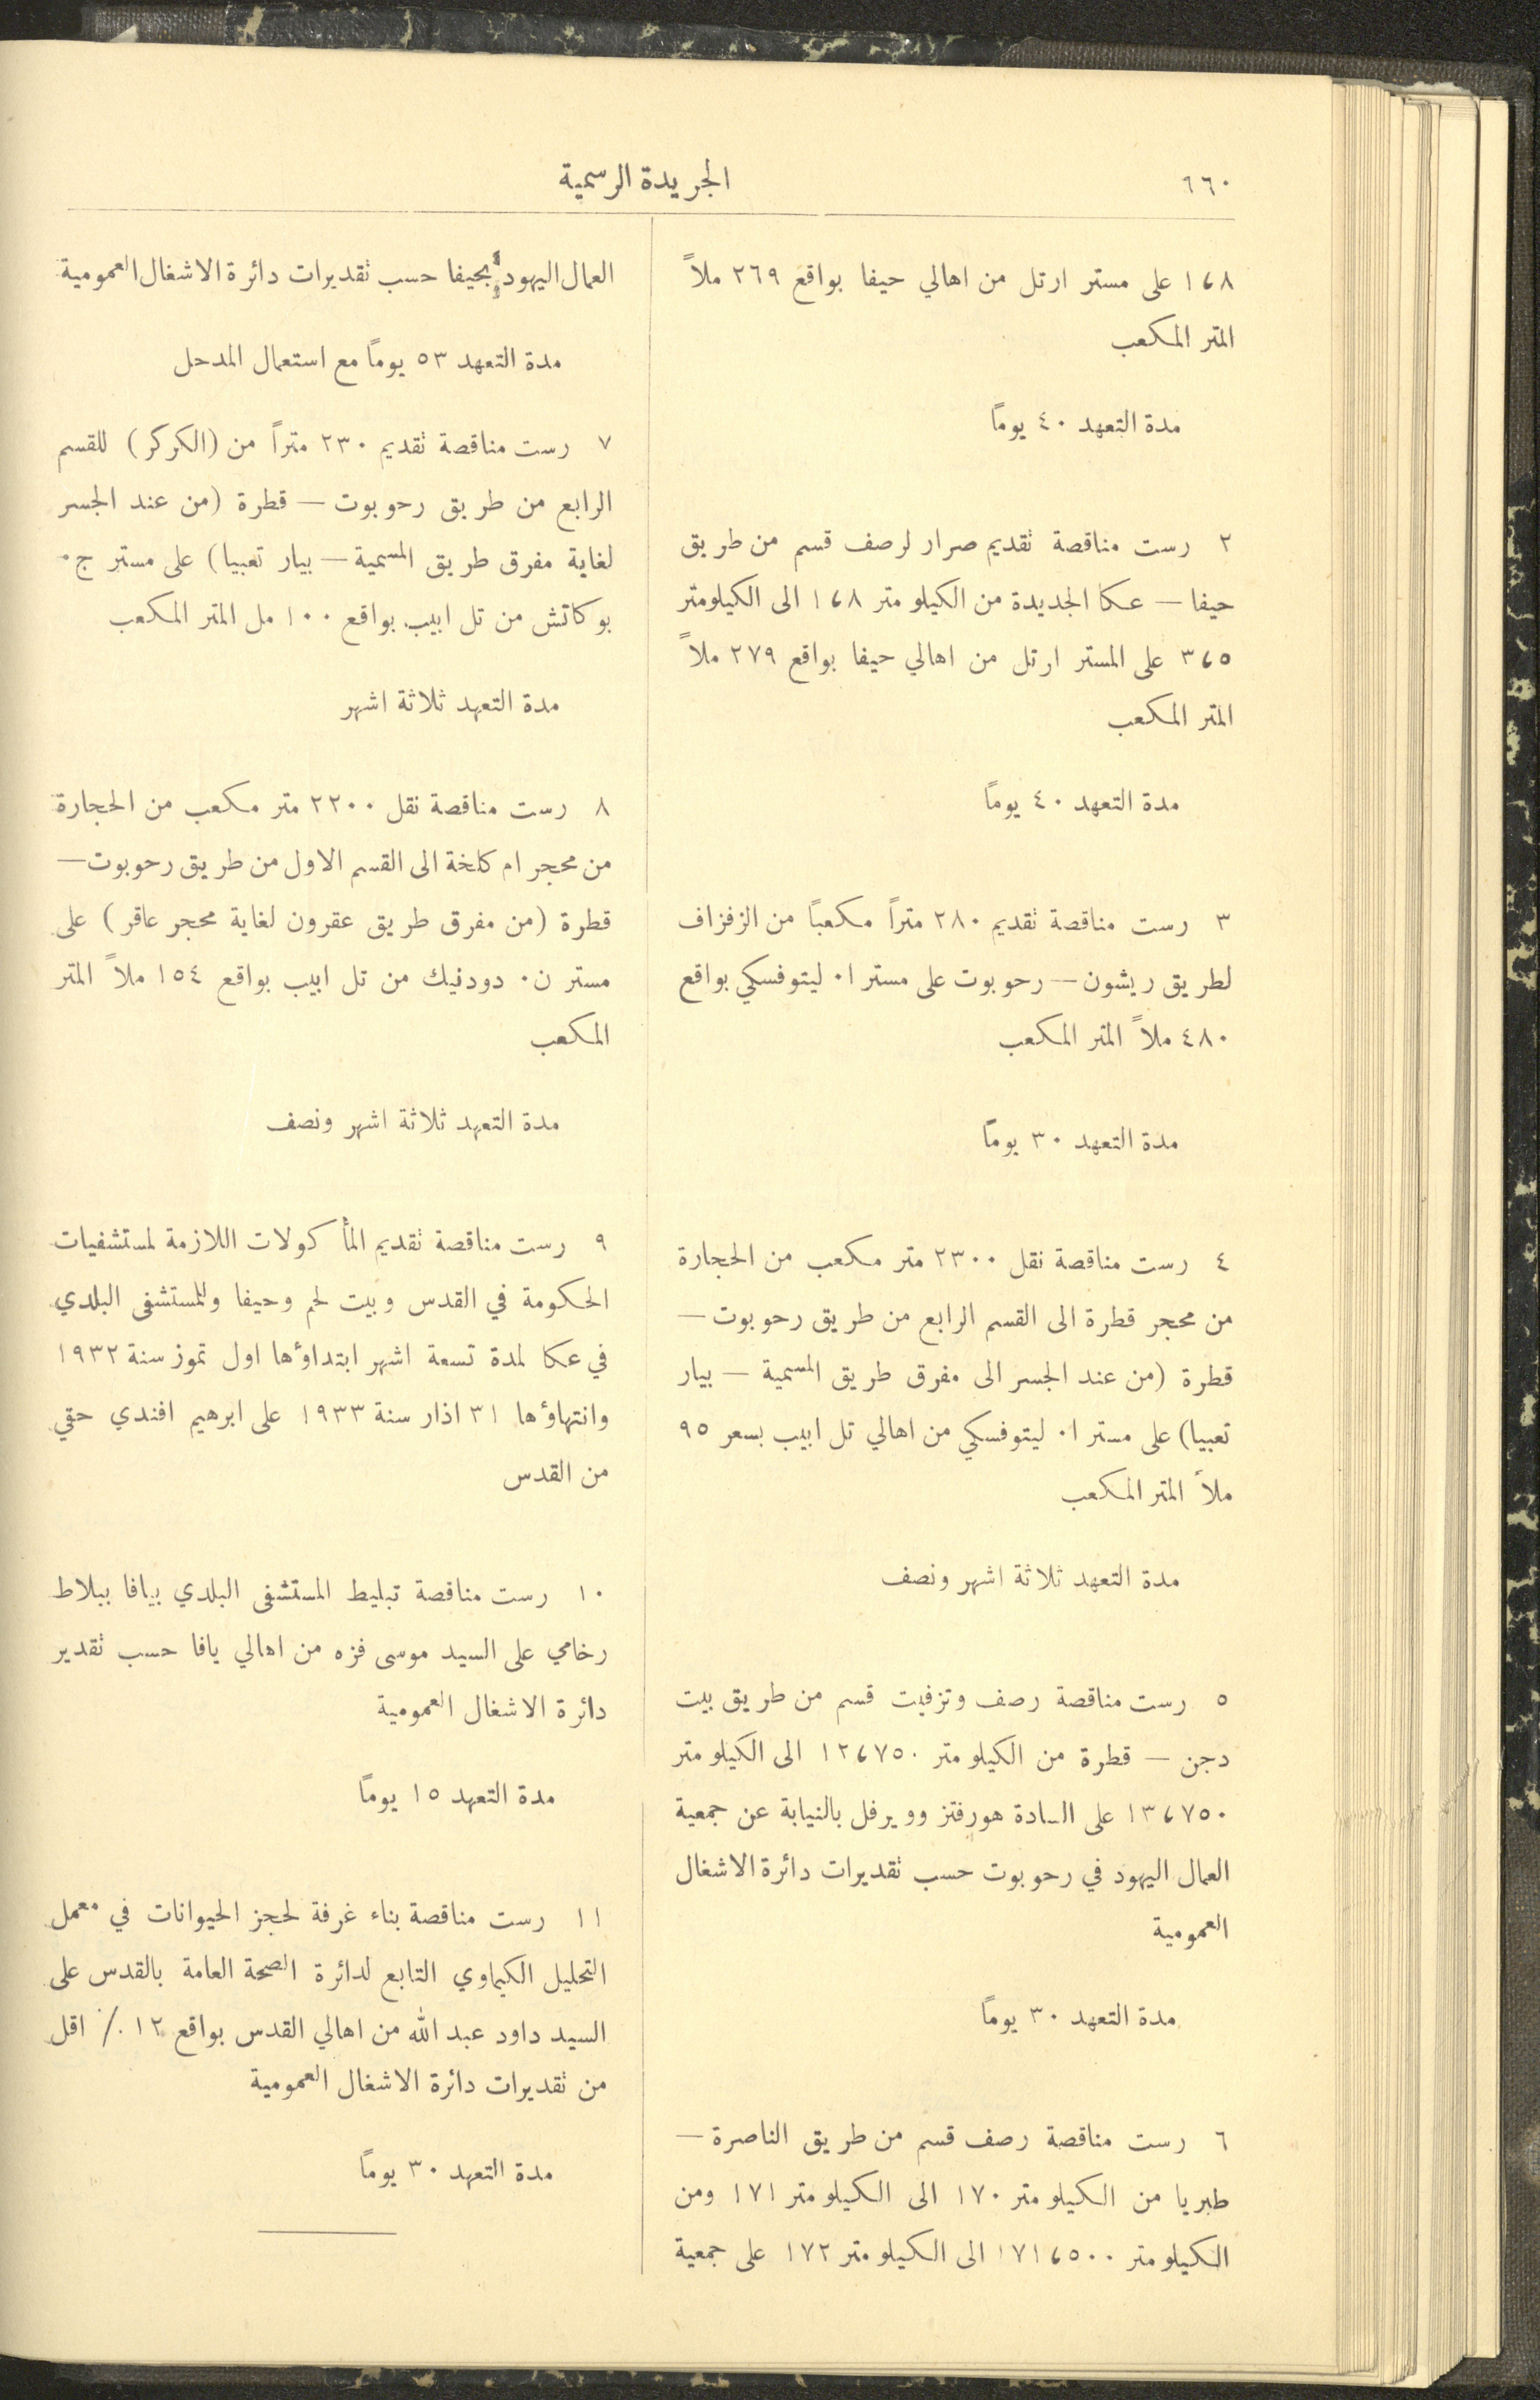 ٦٦٠
الجريدة الرسمية
١،٨ على مستر ارتل من اهالي حيفا بواقع ٢٦٩ ملاً
المتر المكعب
مدة التعهد ٤٠ يوماً
٢ رست مناقصة تقديم صرار لرصف قسم من طريق
حيفا — عكا الجديدة من الكيلو متر ١،٨ الى الكيلومتر
٣،٥ على المستر ارتل من اهالي حيفا بواقع ٢٧٩ ملاً
المتر المكعب
مدة التعهد ٤٠ يوماً
٣ رست مناقصة تقديم ٢٨٠ متراً مكعباً من الزفزاف
لطريق ريشون — رحوبوت على مستر ا٠ ليتوفسكي بواقع
٤٨٠ ملاً المتر المكعب
مدة التعهد ٣٠ يوماً
٤ رست مناقصة نقل ٢٣٠٠ متر مكعب من الحجارة
من محجر قطرة الى القسم الرابع من طريق رحوبوت —
قطرة (من عند الجسر الى مفرق طريق المسمية — بيار
تعبيا) على مستر ا٠ ليتوفسكي من اهالي تل ابيب بسعر ٩٥
ملاً المتر المكعب
مدة التعهد ثلاثة اشهر ونصف
٥ رست مناقصة رصف وتزفيت قسم من طريق بيت
دجن — قطرة من الكيلو متر ١٢،٧٥٠ الى الكيلو متر
١٣،٧٥٠ على السادة هورفتز وويرفل بالنيابة عن جمعية
العمال اليهود في رحوبوت حسب تقديرات دائرة الاشغال
العمومية
مدة التعهد ٣٠ يوماً
٦ رست مناقصة رصف قسم من طريق الناصرة —
طبريا من الكيلو متر ١٧٠ الى الكيلو متر ١٧١ ومن
الكيلو متر ١٧١،٥٠٠ الى الكيلو متر ١٧٢ على جمعية
العمال اليهود بحيفا حسب تقديرات دائرة الاشغال العمومية
مدة التعهد ٥٣ يوماً مع استعمال المدحل
٧ رست مناقصة تقديم ٢٣٠ متراً من (الكركر) للقسم
الرابع من طريق رحوبوت — قطرة (من عند الجسر
لغاية مفرق طريق المسمية — بيار تعبيا) على مستر ج٠
بوكاتش من تل ابيب بواقع ١٠٠ مل المتر المكعب
مدة التعهد ثلاثة اشهر
٨ رست مناقصة نقل ٢٢٠٠ متر مكعب من الحجارة
من محجر ام كلخة الى القسم الاول من طريق رحوبوت —
قطرة (من مفرق طريق عقرون لغاية محجر عاقر) على
مستر ن٠ دودنيك من تل ابيب بواقع ١٥٤ ملاً المتر
المكعب
مدة التعهد ثلاثة اشهر ونصف
٩ رست مناقصة تقديم المأكولات اللازمة لمستشفيات
الحكومة في القدس وبيت لحم وحيفا وللمستشفى البلدي
في عكا لمدة تسعة اشهر ابتداؤها اول تموز سنة ١٩٣٢
وانتهاؤها ٣١ اذار سنة ١٩٣٣ على ابرهيم افندي حقي
من القدس
١٠ رست مناقصة تبليط المستشفى البلدي بيافا ببلاط
رخامي على السيد موسى فزه من اهالي يافا حسب تقدير
دائرة الاشغال العمومية
مدة التعهد ١٥ يوماً
١١ رست مناقصة بناء غرفة لحجز الحيوانات في معمل
التحليل الكيماوي التابع لدائرة الصحة العامة بالقدس على
السيد داود عبد الله من اهالي القدس بواقع ١٢ ٪ اقل
من تقديرات دائرة الاشغال العمومية
مدة التعهد ٣٠ يوماً